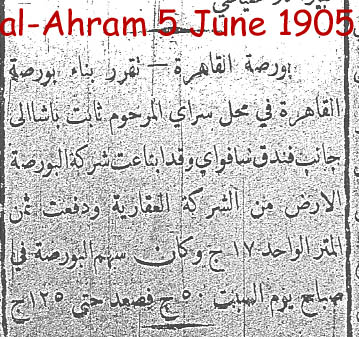 al-Ahram 5 June 1905
بورصة القاهرة — تقرر بناء بورصة
القاهرة في محل سراي المرحوم ثابت باشا الى
جانب فندق نسافواي وقد ابتاعت شركة البورصة
الارض من الشركة العقارية ودفعت ثمن
المتر الواحد ١٧ ج وكان سهم البورصة في
صباح يوم السبت ٥٠ ج فصعد حتى ١٢٥ ج